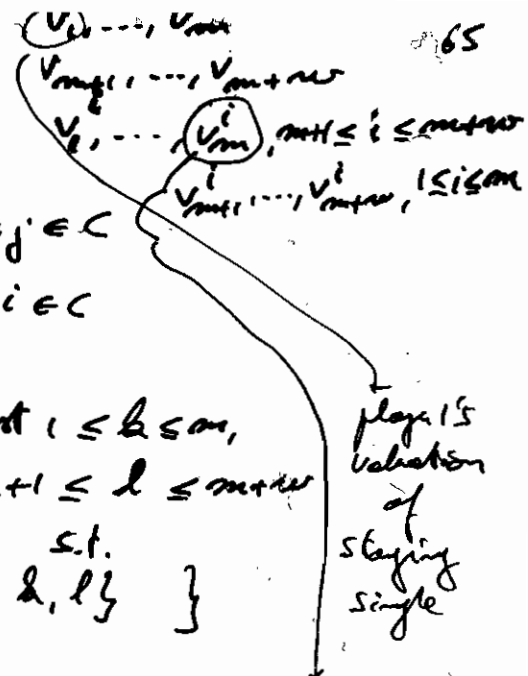 v_1, ..., v_m
65
v_{m+1}, ..., v_{m+w}
v_1^i, ..., v_m^i, m+1 ≤ i ≤ m+w
v_{m+1}^i, ..., v_{m+w}^i, 1 ≤ i ≤ m
j ∈ C
i ∈ C
1 ≤ k ≤ m,
+1 ≤ l ≤ m+w
s.t.
k, l} }
player 1's
valuation
of
staying
single